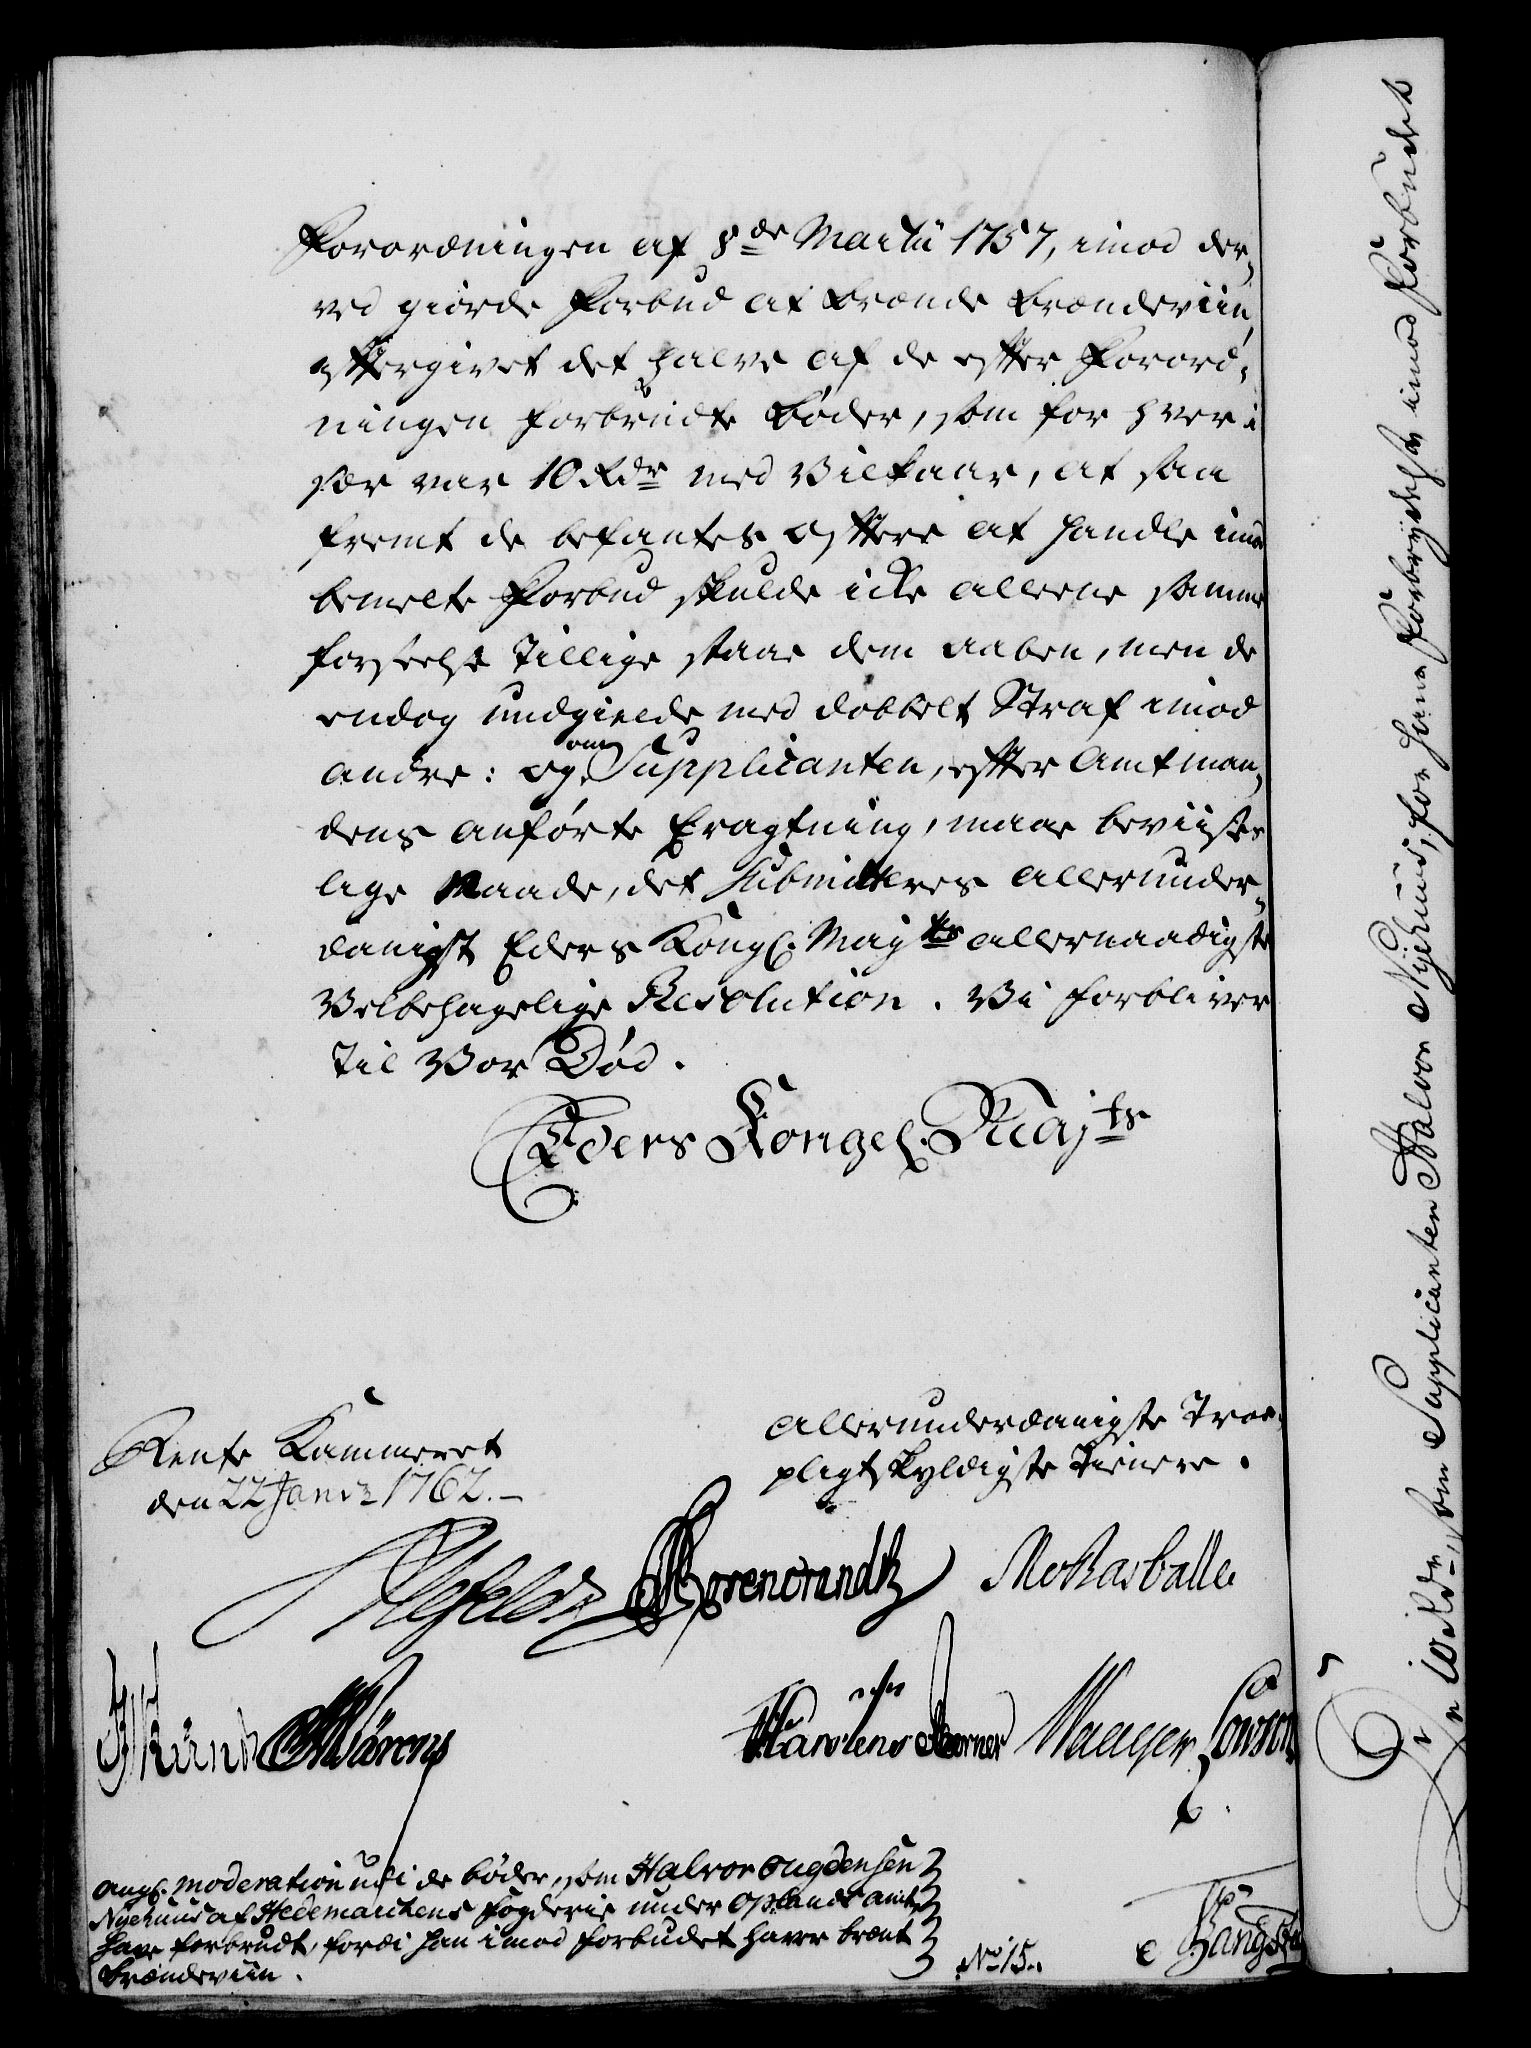 Forordningen af 8de Martii 1757, imod der,,
ved giorde Forbud at brænde Brændeviin,
eftergivet det halve af de efter Forord-
ningen forbrudte Bøder, som for hver i
sær var 10 Rdr med Vilkaar, at saa
fremt de befantes oftere at handle imod
bemelte Forbud skulde icke alleene samme
forseelse tillige staae dem aaben, men de
endog undgielde med dobbelt Straf imod
andre: og om Supplicanten, efter Amtman,,
dens anførte Eragtning, maae beviises
lige Naade, det submitteres allerunder,,
danigst Eders Kongl. Mayts allernaadigste
Velbehagelige Resolution. Vi forbliver
til Vor Død.
Eders Kongel. Majts
Rente Kammeret
den 22 Janv. 1762.
allerunderdanigste Troe-
pligtskyldigste Tienere.
Ahlefeldt
Möllengaard
ang. moderation udi de bøder, som Halvor Engebensen
Nyehuus af Hedemarkens Fogderie under Oplands amt,
have forbrudt, fordi han imod forbudet haver brænt
Brændeviin.
No 15.
De 10 Rdr, som Supplicanten Halvor Nyehuus, for hans Forbrydelse imod Forbudet